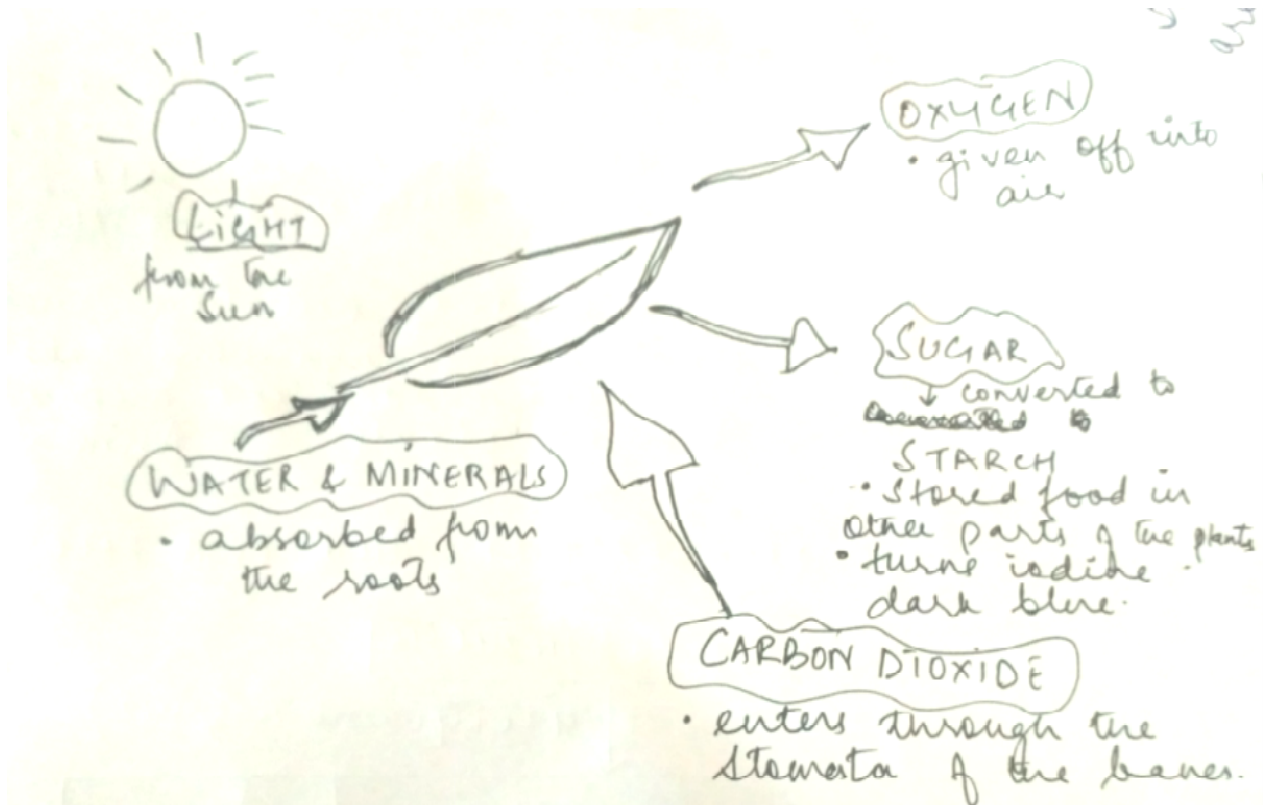 OXYGEN
• given off into
air
LIGHT
from the
Sun
SUGAR
↓ converted to
STARCH
• Stored food in
other parts of the plants
• turns iodine
dark blue.
WATER & MINERALS
• absorbed from
the roots
CARBON DIOXIDE
• enters through the
Stomata of the